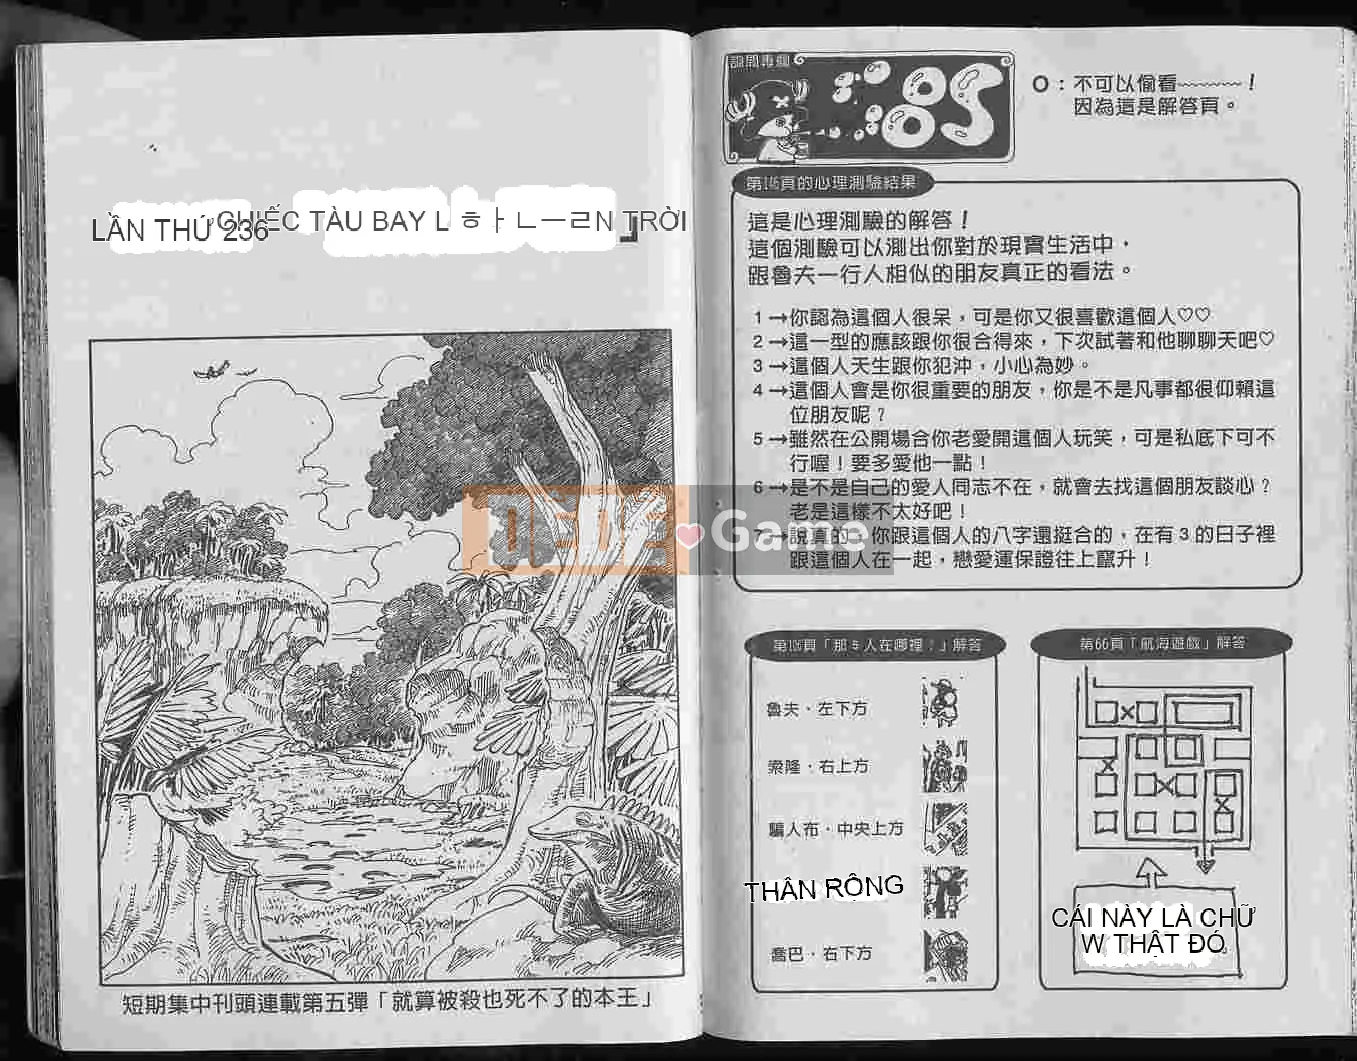 LẦN THỨ 236
CHIẾC TÀU BAY L ㅎㅏ ㄴㅡㄹN TRỜI
」
短期集中刊頭連載第五彈「就算被殺也死不了的本王」
SBS
O：不可以偷看~~~~~~！
因為這是解答頁。
第146頁的心理測驗結果
這是心理測驗的解答！
這個測驗可以測出你對於現實生活中，
跟魯夫一行人相似的朋友真正的看法。
1→你認為這個人很呆，可是你又很喜歡這個人♡♡
2→這一型的應該跟你很合得來，下次試著和他聊聊天吧♡
3→這個人天生跟你犯沖，小心為妙。
4→這個人會是你很重要的朋友，你是不是凡事都很仰賴這
位朋友呢？
5→雖然在公開場合你老愛開這個人玩笑，可是私底下可不
行喔！要多愛他一點！
6→是不是自己的愛人同志不在，就會去找這個朋友談心？
老是這樣不太好吧！
7→說真的，你跟這個人的八字還挺合的，在有3的日子裡
跟這個人在一起，戀愛運保證往上竄升！
DEDE Game
「那5人在哪裡？」解答
魯夫．左下方
索隆．右上方
騙人布．中央上方
THÂN RỘNG
喬巴．右下方
第66頁「航海遊戲」解答
CÁI NÀY LÀ CHỮ
W THẬT ĐÓ.